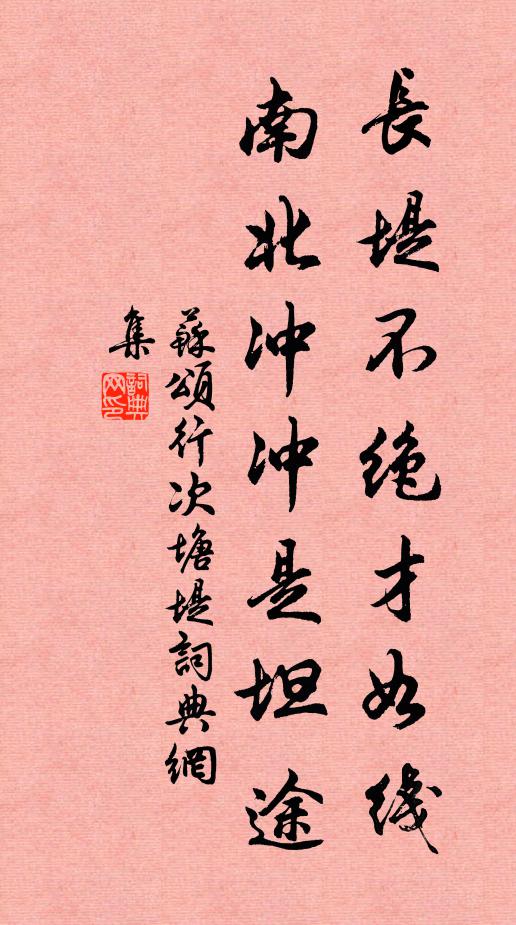 長堤不絶才如綫
南北冲冲是坦途
蘇頌行次塘堤詞典網
集
詞典网印